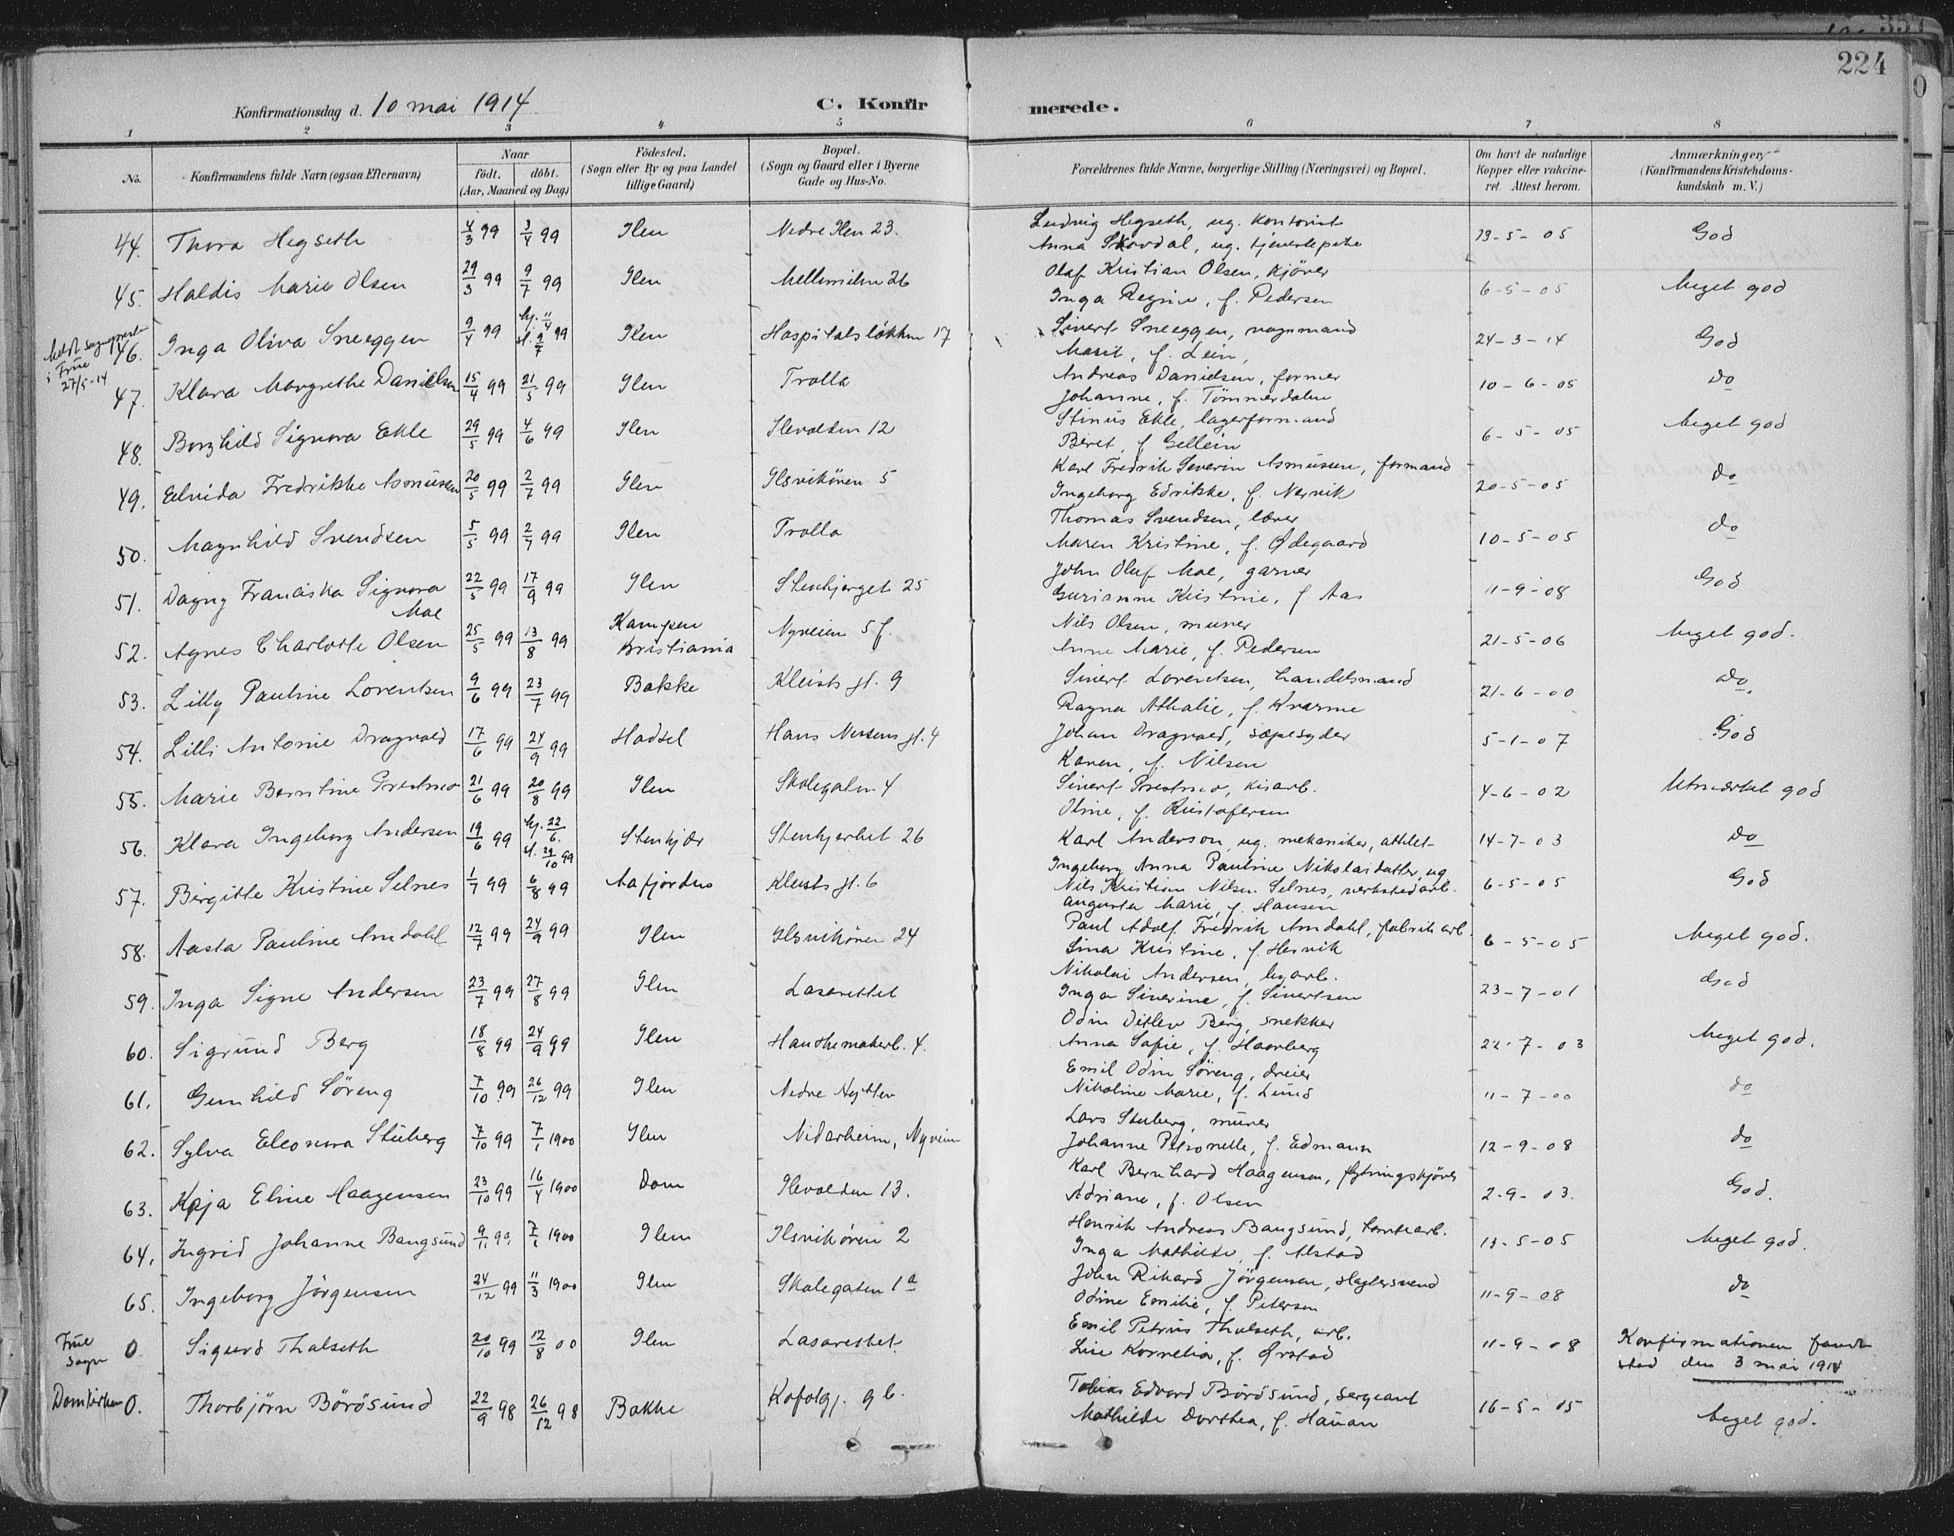 224
Konfirmationsdag d. 10 mai 1914 C. Konfirmerede.
1 2 3 4 5 6 7 8
No. Konfirmandens fulde Navn (ogsaa Efternavn) Naar födt. döbt. (Aar, Maaned og Dag) Födested. (Sogn eller By og paa Landet tillige Gaard) Bopæl. (Sogn og Gaard eller i Byerne Gade og Hus-No. Forældrenes fulde Navne, borgerlige Stilling (Næringsvei) og Bopæl. Om havt de naturlige Kopper eller vakcineret. Attest herom. Anmærkninger, (Konfirmandens Kristendomskundskab m. V.)
44. Thora Hegseth 4/3 99 3/4 99 Ilen Nedre Ilen 23. Ludvig Hegseth, ug. kontorist 13-5-05 God
Anna Skovdal, ug. tjenestepike
45. Haldis Marie Olsen 29/3 99 9/7 99 Ilen Mellemilen 26 Olaf Kristian Olsen, kjörer 6-5-05 Meget god
Inga Regine, f. Pedersen
i Frue 27/5-14
46. Inga Oliva Sneeggen 9/4 99 hj. 11/4 st. 9/7 99 Ilen Hospitalsløkken 17 Sivert Sneeggen, vognmand 24-3-14 God
Marit, f. Lein,
47. Klara Margrethe Danielsen 15/4 99 21/5 99 Ilen Trolla Andreas Danielsen, former 10-6-05 do
Johanne, f. Tömmerdalen
48. Borghild Signora Ekle 29/5 99 4/6 99 Ilen Ilevolden 12 Stinus Ekle, lagerformand 6-5-05 Meget god
Beret, f. Gellein
49. Elvida Fredrikke Asmussen 20/5 99 2/7 99 Ilen Ilsvikören 5 Karl Fredrik Severin Asmussen, formand 20-5-05 do
Ingeborg Edrikke, f. Nervik
50. Magnhild Svendsen 5/5 99 2/7 99 Ilen Trolla Thomas Svendsen, lærer 10-5-05 do
Maren Kristine, f. Ødegaard
51. Dagny Franciska Signora Moe 22/5 99 17/9 99 Ilen Stenbjerget 25 John Oluf Moe, garver 11-9-08 God
Gurianna Kristine, f. Aas
52. Agnes Charlotte Olsen 25/5 99 13/8 99 Kampen Kristiania Nyveien 5 f. Nils Olsen, murer 21-5-06 Meget god.
Anne Marie, f. Pedersen
53. Lilly Pauline Lorentsen 9/6 99 23/7 99 Bakke Kleists gt. 9 Sivert Lorentsen, handelsmand 21-6-00 do.
Ragna Athalie, f. Kvarme
54. Lilli Antonie Dragvoed 17/6 99 24/9 99 Hadsel Hans Nissens gt. 4 Johan Dragvoed, sæpesyder 5-1-07 God
Karen, f. Nilsen
55. Marie Berntine Prestmo 21/6 99 20/8 99 Ilen Skolegaten 4 Sivert Prestmo, kisarb. 4-6-02 Utmærket god
Oline, f. Kristofersen
56. Klara Ingeborg Andersen 19/6 99 hj. 22/6. st. 29/10 99 Stenkjær Stenbjerget 26 Karl Anderson, ug. mekaniker, athlet- 14-7-03 do
Ingeborg Anna Pauline Nikolaidatter, ug
57. Birgitte Kristine Selnes 1/7 99 6/8 99 Aafjorden Kleists gt. 6 Nils Kristian Nilsen Selnes, verkstedarb. 6-5-05 God
Augusta Marie, f. Hansen
58. Aasta Pauline Amdahl 12/7 99 24/9 99 Ilen Ilsvikören 24 Paul Adolf Fredrik Amdahl, fabrikarb. 6-5-05 Meget god.
Lina Kristine, f. Hervik
59. Inga Signe Andersen 23/7 99 27/8 99 Ilen Lasarettet Nikolai Andersen, byarb. 23-7-01 God
Inga Siverine, f. Sivertsen
60. Sigrund Berg 18/8 99 24/9 99 Ilen Hanskemakerb. 4. Odin Ditlev Berg, snekker 22-7-03 Meget god.
Anna Sofie, f. Haarberg
61. Gunhild Søreng 7/10 99 26/12 99 Ilen Nedre Hytten Emil Odin Søreng, dreier 11-7-00 do
Nikoline Marie, f. Lund
62. Sylva Eleonora Stuberg 7/10 99 7/1 1900 Ilen Nidarheim, Nyveien Lars Stuberg, murer 12-9-08 do
Johanne Petronelle, f. Edmann
63. Kaja Eline Haagensen 23/10 99 16/4 1900 Dom Ilevolden 13. Karl Bernhard Haagensen, flytningskjører 2-9-03. God.
Adriane, f. Olsen
64. Ingrid Johanne Bangsund 9/11 99. 7/1 1900 Ilen Ilsvikören 2 Henrik Andreas Bangsund, tomtearb. 13-5-05 Meget god.
Inga Mathilde, f. Alstad
65. Ingeborg Jörgensen 24/12 99 11/3 1900 Ilen Skolegaten 1a John Rikard Jörgensen, Høylersvend 11-9-08 do
Odine Emilie, f. Petersen
Frue sogn 0 Sigurd Thalseth 20/10 99 12/8 00 Ilen Lasarettet Emil Petrus Thalseth, arb. 11-9-08 Konfirmationen fandt sted den 3 mai 1914
Lise Kornelia, f. Ørstad
Domkirken 0. Thorbjørn Börösund 22/9 98 26/12 98 Bakke Tobias Edvard Börösund, sergeant 16-5-05 Meget god.
Mathilde Dorthea, f. Hauan